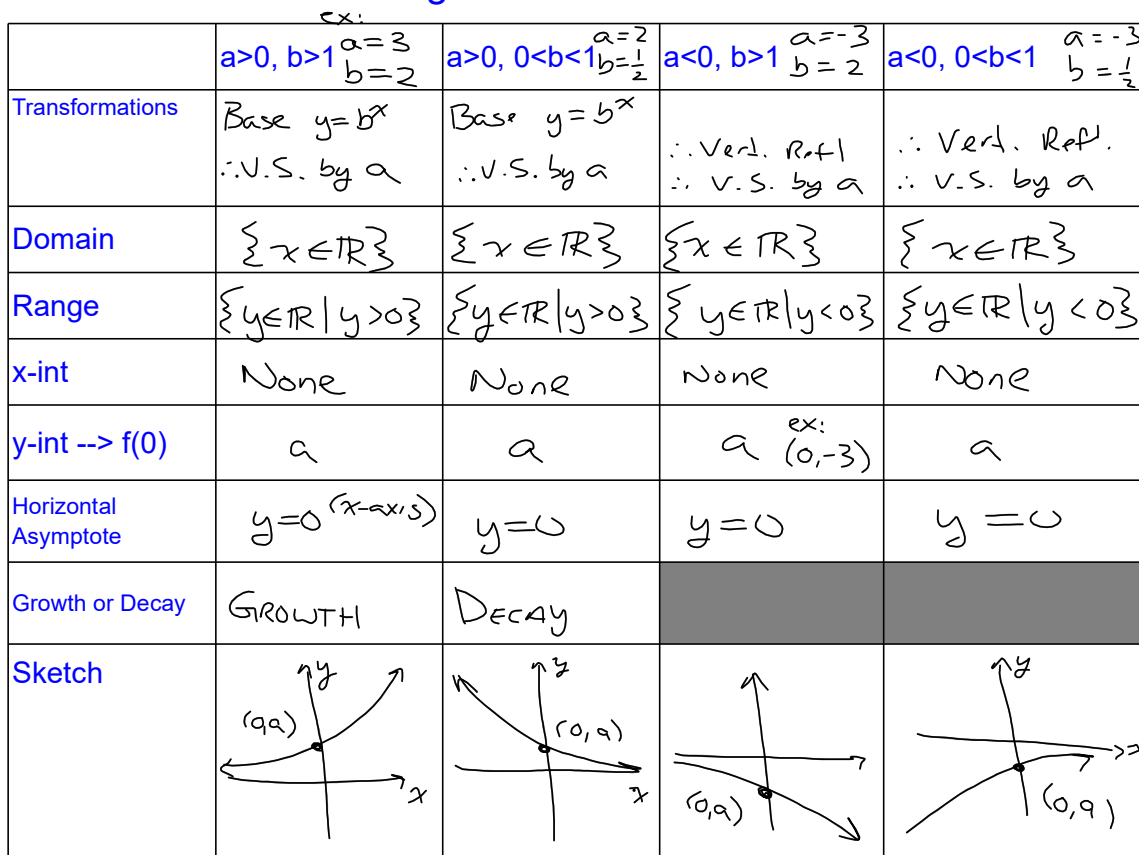 ex:
a>0, b>1 a=3 b=2
a>0, 0<b<1 a=2 b=1/2
a<0, b>1 a=-3 b=2
a<0, 0<b<1 a=-3 b=1/2
Transformations
Base y=b^x
∴V.S. by a
Base y=b^x
∴V.S. by a
∴ Vert. Refl
∴ V.S. by a
∴ Vert. Refl.
∴ V.S. by a
Domain {x∈ℝ} {x∈ℝ} {x∈ℝ} {x∈ℝ}
Range {y∈ℝ|y>0} {y∈ℝ|y>0} {y∈ℝ|y<0} {y∈ℝ|y<0}
x-int None None None None
y-int --> f(0) a a a ex: (0,-3) a
Horizontal
Asymptote
y=0 (x-axis) y=0 y=0 y=0
Growth or Decay GROWTH DECAY
Sketch
y (0,a) x
y (0,a) x
(0,a)
y (0,a) x